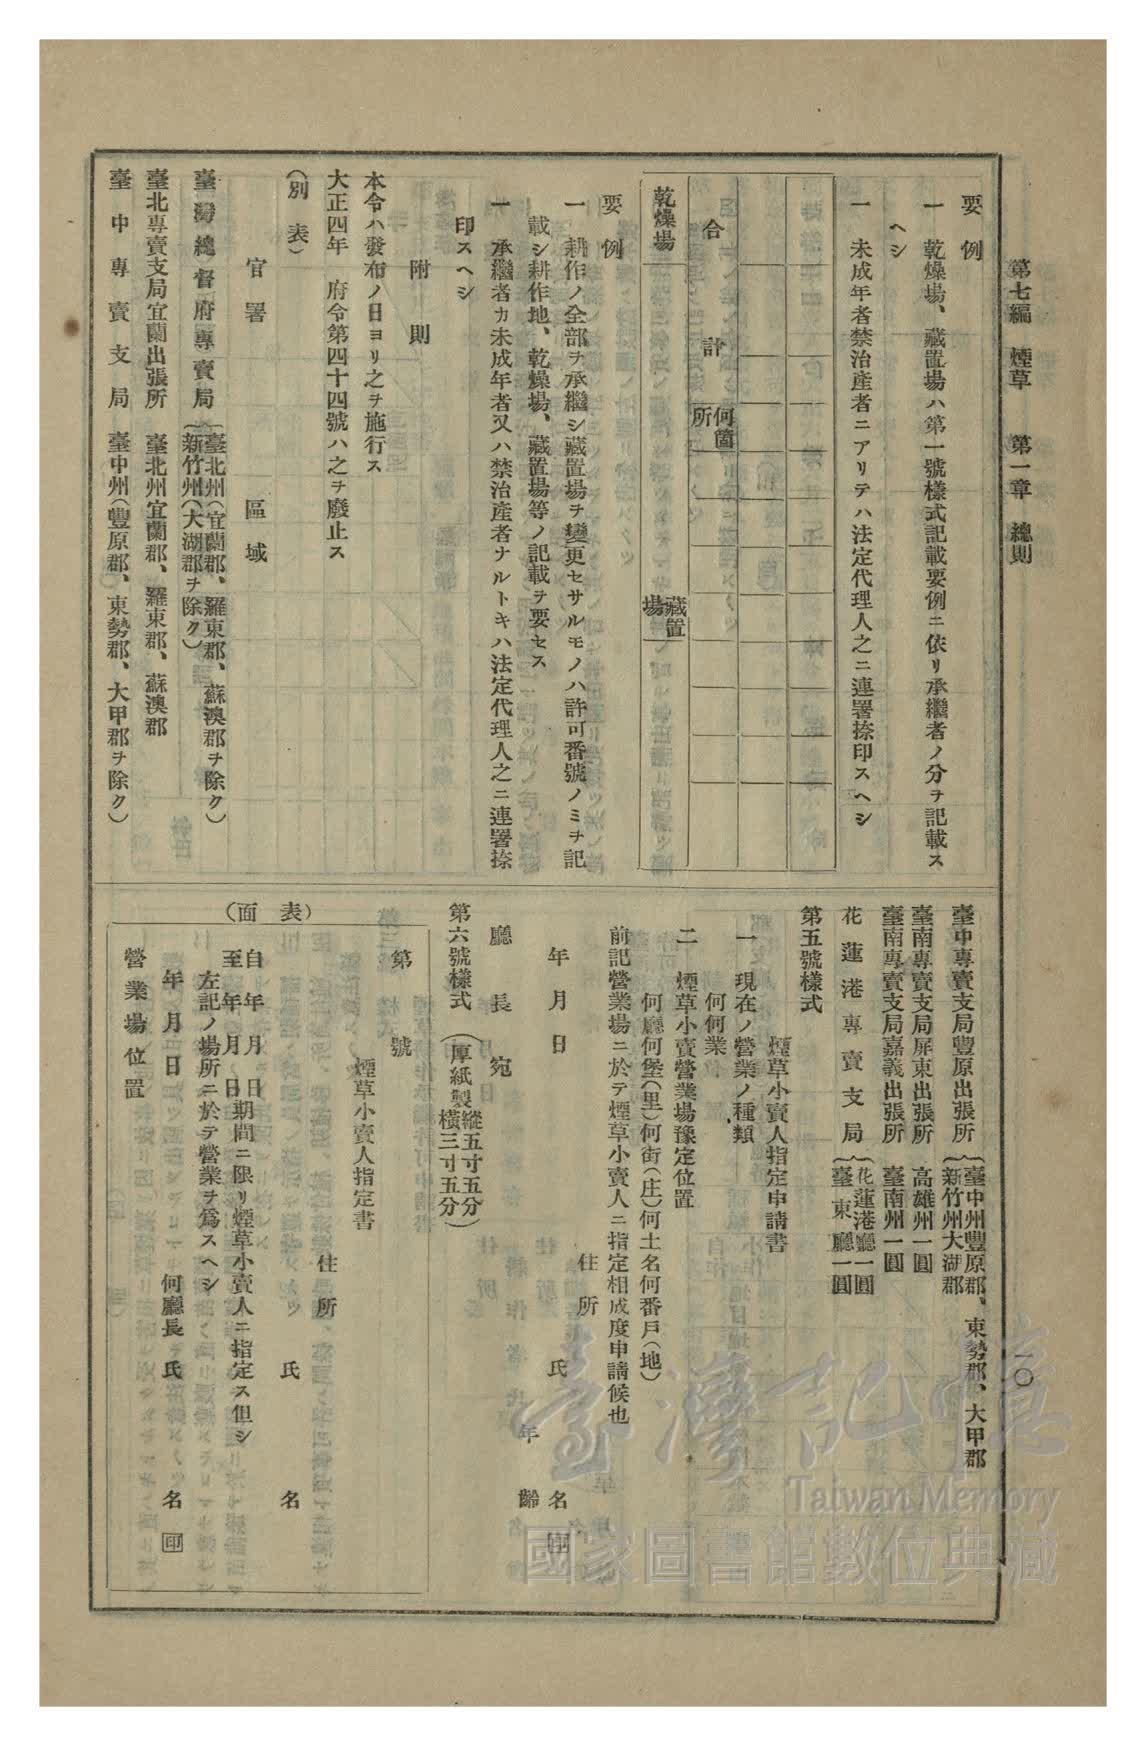 第七編　煙草　第一章　總則
一〇
要例
一　乾燥場、藏置場ハ第一號樣式記載要例ニ依リ承繼者ノ分ヲ記載ス
ヘシ
一　未成年者禁治産者ニアリテハ法定代理人之ニ連署捺印スヘシ
合計
何箇所
乾燥場
藏置場
要例
一　耕作ノ全部ヲ承繼シ藏置場ヲ變更セサルモノハ許可番號ノミヲ記
載シ耕作地、乾燥場、藏置場等ノ記載ヲ要セス
一　承繼者カ未成年者又ハ禁治産者ナルトキハ法定代理人之ニ連署捺
印スヘシ
附則
本令ハ發布ノ日ヨリ之ヲ施行ス
大正四年　府令第四十四號ハ之ヲ廢止ス
（別表）
官署　區域
臺灣總督府專賣局　臺北州（宜蘭郡、羅東郡、蘇澳郡ヲ除ク）
新竹州（大湖郡ヲ除ク）
臺北專賣支局宜蘭出張所　臺北州宜蘭郡、羅東郡、蘇澳郡
臺中專賣支局　臺中州（豐原郡、東勢郡、大甲郡ヲ除ク）
臺中專賣支局豐原出張所　臺中州豐原郡、東勢郡、大甲郡
新竹州大湖郡
臺南專賣支局屏東出張所　高雄州一圓
臺南專賣支局嘉義出張所　臺南州一圓
花蓮港專賣支局　花蓮港廳一圓
臺東廳一圓
第五號樣式
煙草小賣人指定申請書
一　現在ノ營業ノ種類
何何業
二　煙草小賣營業場豫定位置
何廳何堡（里）何街（庄）何土名何番戶（地）
前記營業場ニ於テ煙草小賣人ニ指定相成度申請候也
住所
年月日　氏名㊞
年齡
廳長宛
第六號樣式（厚紙製縱五寸五分
橫三寸五分）
（表面）
第　號
煙草小賣人指定書
住所
氏名
自年月日
至年月日期間ニ限リ煙草小賣人ニ指定ス但シ
左記ノ場所ニ於テ營業ヲ爲スヘシ
年月日　何廳長氏名㊞
營業場位置
臺灣記憶
Taiwan Memory
國家圖書館數位典藏